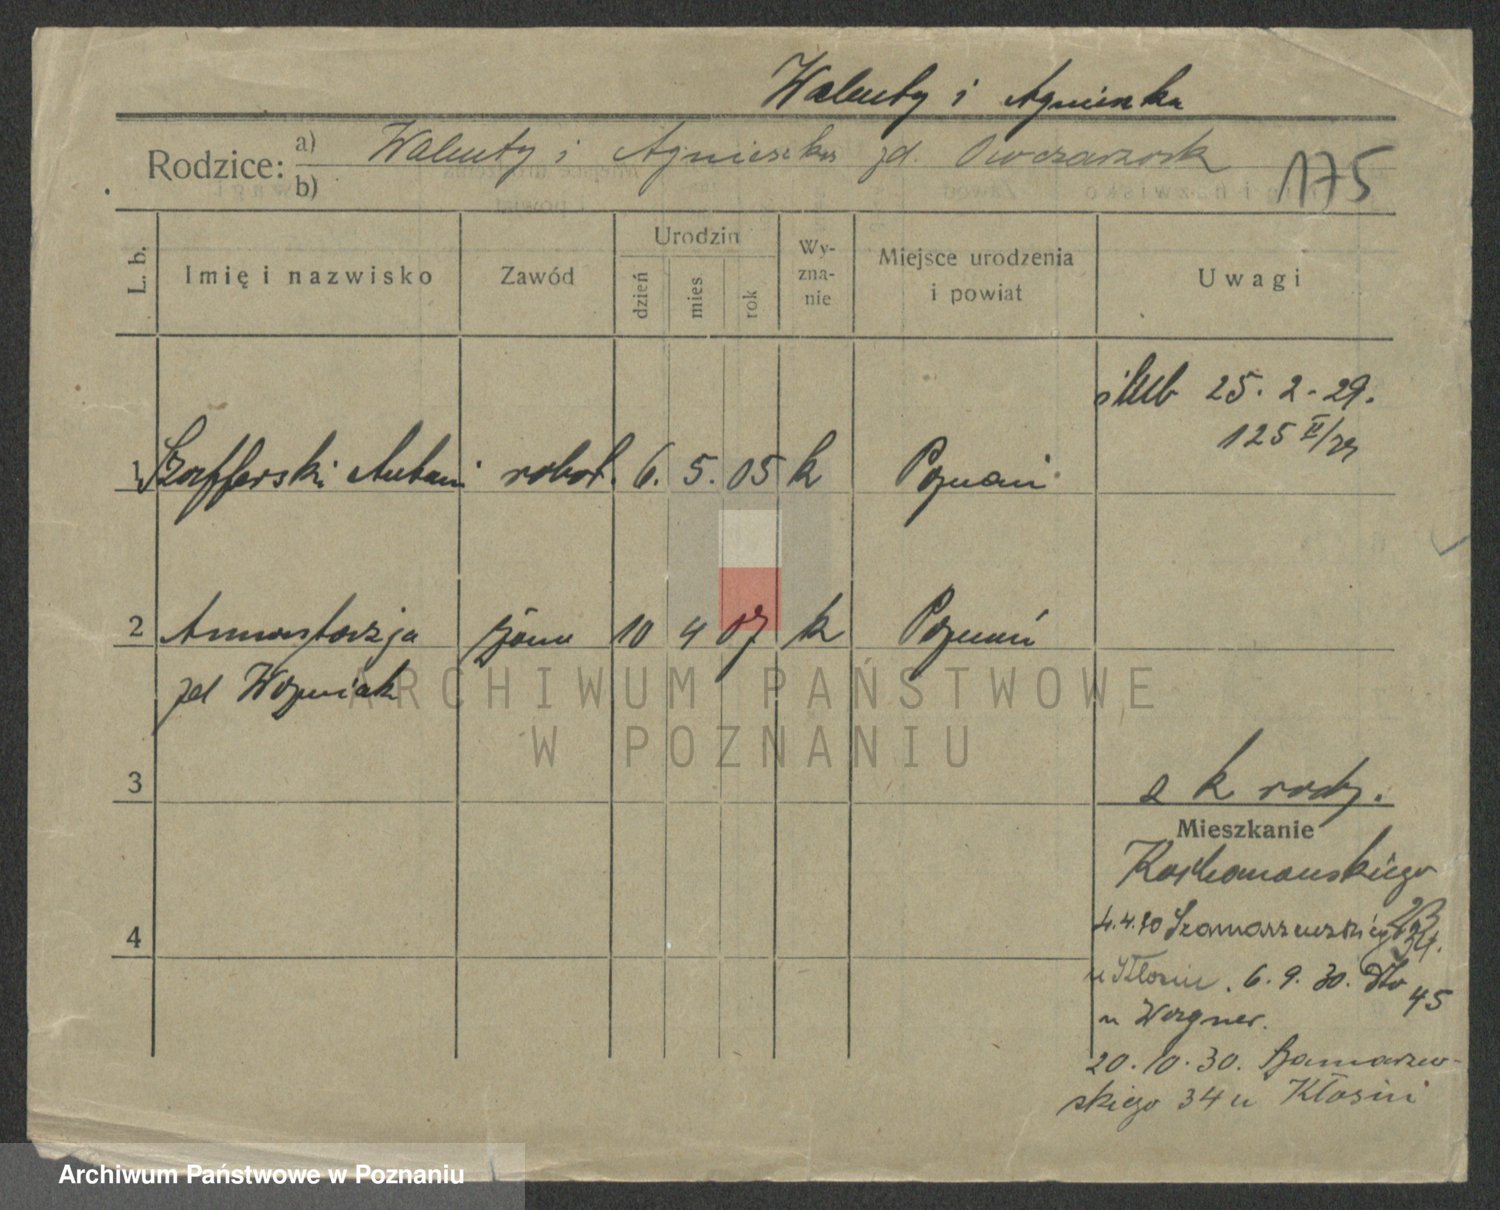 Walenty i Agnieszka
Rodzice: a) Walenty i Agnieszka zd. Owczarzak
b)
175
L. b. Imię i nazwisko Zawód Urodzin dzień mies rok Wy-zna-nie Miejsce urodzenia i powiat Uwagi
ślub 25. 2 - 29.
125 II/29
1 Szafferski Antoni robot. 6. 5. 05 k Poznań
2 Anastazja żona 10 4 07 k Poznań
zd Woźniak
ARCHIWUM PAŃSTWOWE
W POZNANIU
3
k rodz.
Mieszkanie
4
4.4.30 Szamarzewskiego
34.
u Kłosin. 6. 9. 30. dto 45
u Wegner.
20. 10. 30. Szamarzew-
skiego 34 u Kłosin
Archiwum Państwowe w Poznaniu